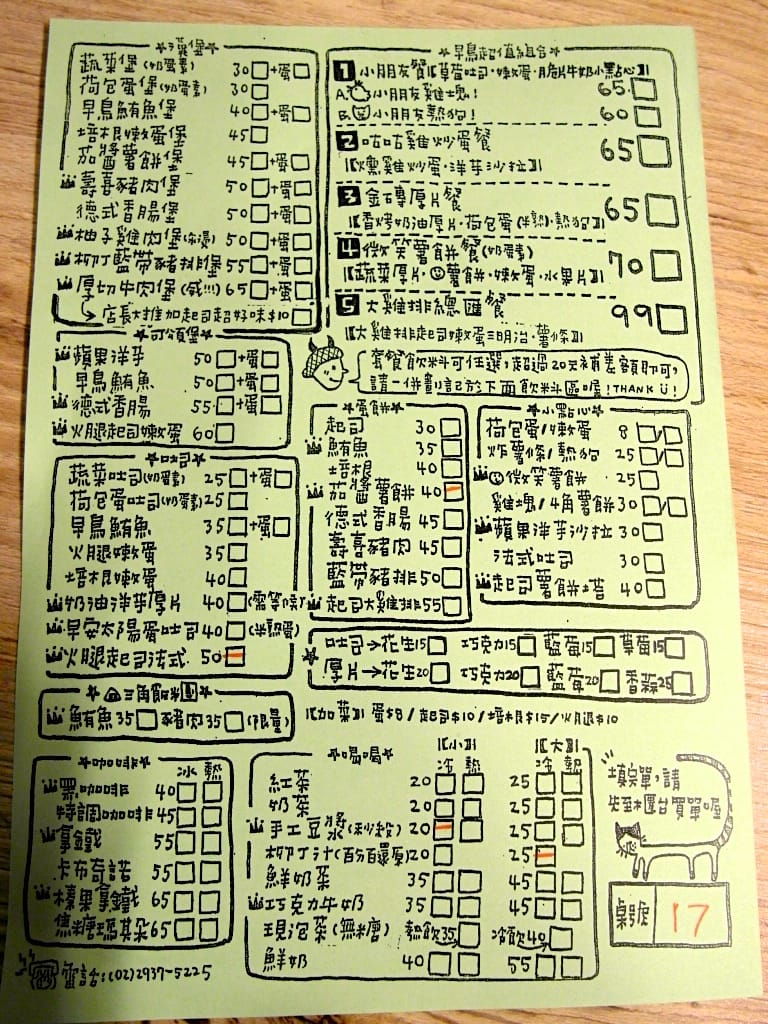 漢堡
蔬菜堡(奶蛋素) 30 +蛋
荷包蛋堡(奶蛋素) 30
早鳥鮪魚堡 40 +蛋
培根嫩蛋堡 45
茄醬薯餅堡 45 +蛋
壽喜豬肉堡 50 +蛋
德式香腸堡 50 +蛋
柚子雞肉堡 50 +蛋
柳丁藍帶豬排堡 55 +蛋
厚切牛肉堡(威!!!) 65 +蛋
店長大推加起司超好味$10
可頌堡
蘋果洋芋 50 +蛋
早鳥鮪魚 50 +蛋
德式香腸 55 +蛋
火腿起司嫩蛋 60
吐司
蔬菜吐司(奶蛋素) 25 +蛋
荷包蛋吐司(奶蛋素) 25
早鳥鮪魚 35 +蛋
火腿嫩蛋 35
培根嫩蛋 40
奶油洋芋厚片 40 (需等候)
早安太陽蛋吐司 40 (半熟蛋)
火腿起司法式 50
三角飯糰
鮪魚35 豬肉35 (限量)
早鳥超值組合
1 小朋友餐【草莓吐司·嫩蛋·脆片牛奶小點心】
A. 小朋友雞塊! 65
B. 小朋友熱狗! 60
2 咕咕雞炒蛋餐 65
【燻雞炒蛋·洋芋沙拉】
3 金磚厚片餐 65
【香烤奶油厚片·荷包蛋(半熟)·熱狗】
4 微笑薯餅餐(奶蛋素) 70
【蔬菜厚片·薯餅·嫩蛋·水果片】
5 大雞排總匯餐 99
【大雞排起司嫩蛋三明治·薯條】
套餐飲料可任選,超過20元補差額即可,
請一併劃記於下面飲料區喔!THANK U!
蛋餅
起司 30
鮪魚 35
培根 40
茄醬薯餅 40
德式香腸 45
壽喜豬肉 45
藍帶豬排 50
起司大雞排 55
小點心
荷包蛋/嫩蛋 8 /
炸薯條/熱狗 25 /
微笑薯餅 25
雞塊/4角薯餅 30 /
蘋果洋芋沙拉 30
法式吐司 30
起司薯餅塔 40
吐司→花生15 巧克力15 藍莓15 草莓15
厚片→花生20 巧克力20 藍莓20 香蒜25
【加菜】蛋$8/起司$10/培根$15/火腿$10
咖啡
冰 熱
黑咖啡 40
特調咖啡 45
拿鐵 55
卡布奇諾 55
榛果拿鐵 65
焦糖瑪其朵 65
喝喝
【小】 【大】
冷 熱 冷 熱
紅茶 20 25
奶茶 20 25
手工豆漿 20 25
柳丁汁(百分百還原) 20 25
鮮奶茶 35 45
巧克力牛奶 35 45
現泡茶(無糖) 熱飲35 冷飲40
鮮奶 40 55
填完單,請
先至櫃台買單喔
桌號 17
電話:(02)2937-5225